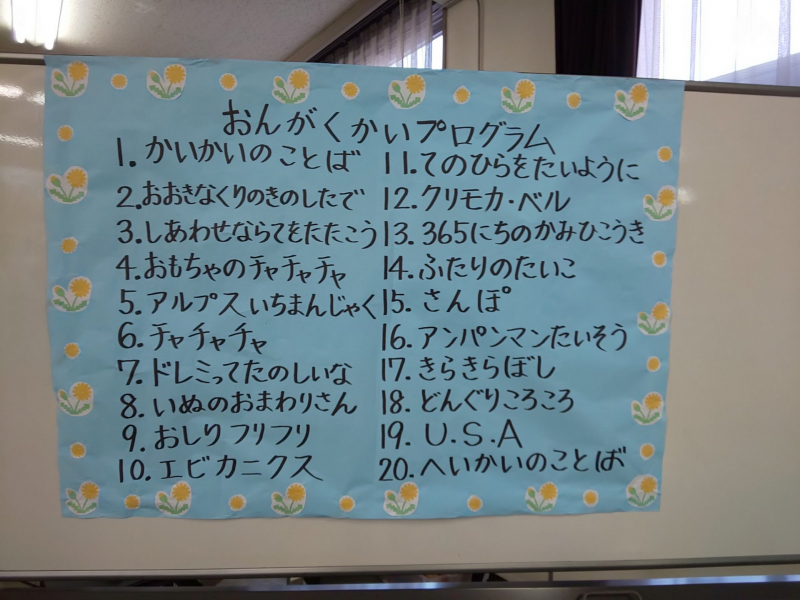 おんがくかいプログラム
1. かいかいのことば
2. おおきなくりのきのしたで
3. しあわせならてをたたこう
4. おもちゃのチャチャチャ
5. アルプスいちまんじゃく
6. チャチャチャ
7. ドレミってたのしいな
8. いぬのおまわりさん
9. おしりフリフリ
10. エビカニクス
11. てのひらをたいように
12. クリモカ・ベル
13. 365にちのかみひこうき
14. ふたりのたいこ
15. さんぽ
16. アンパンマンたいそう
17. きらきらぼし
18. どんぐりころころ
19. U.S.A
20. へいかいのことば